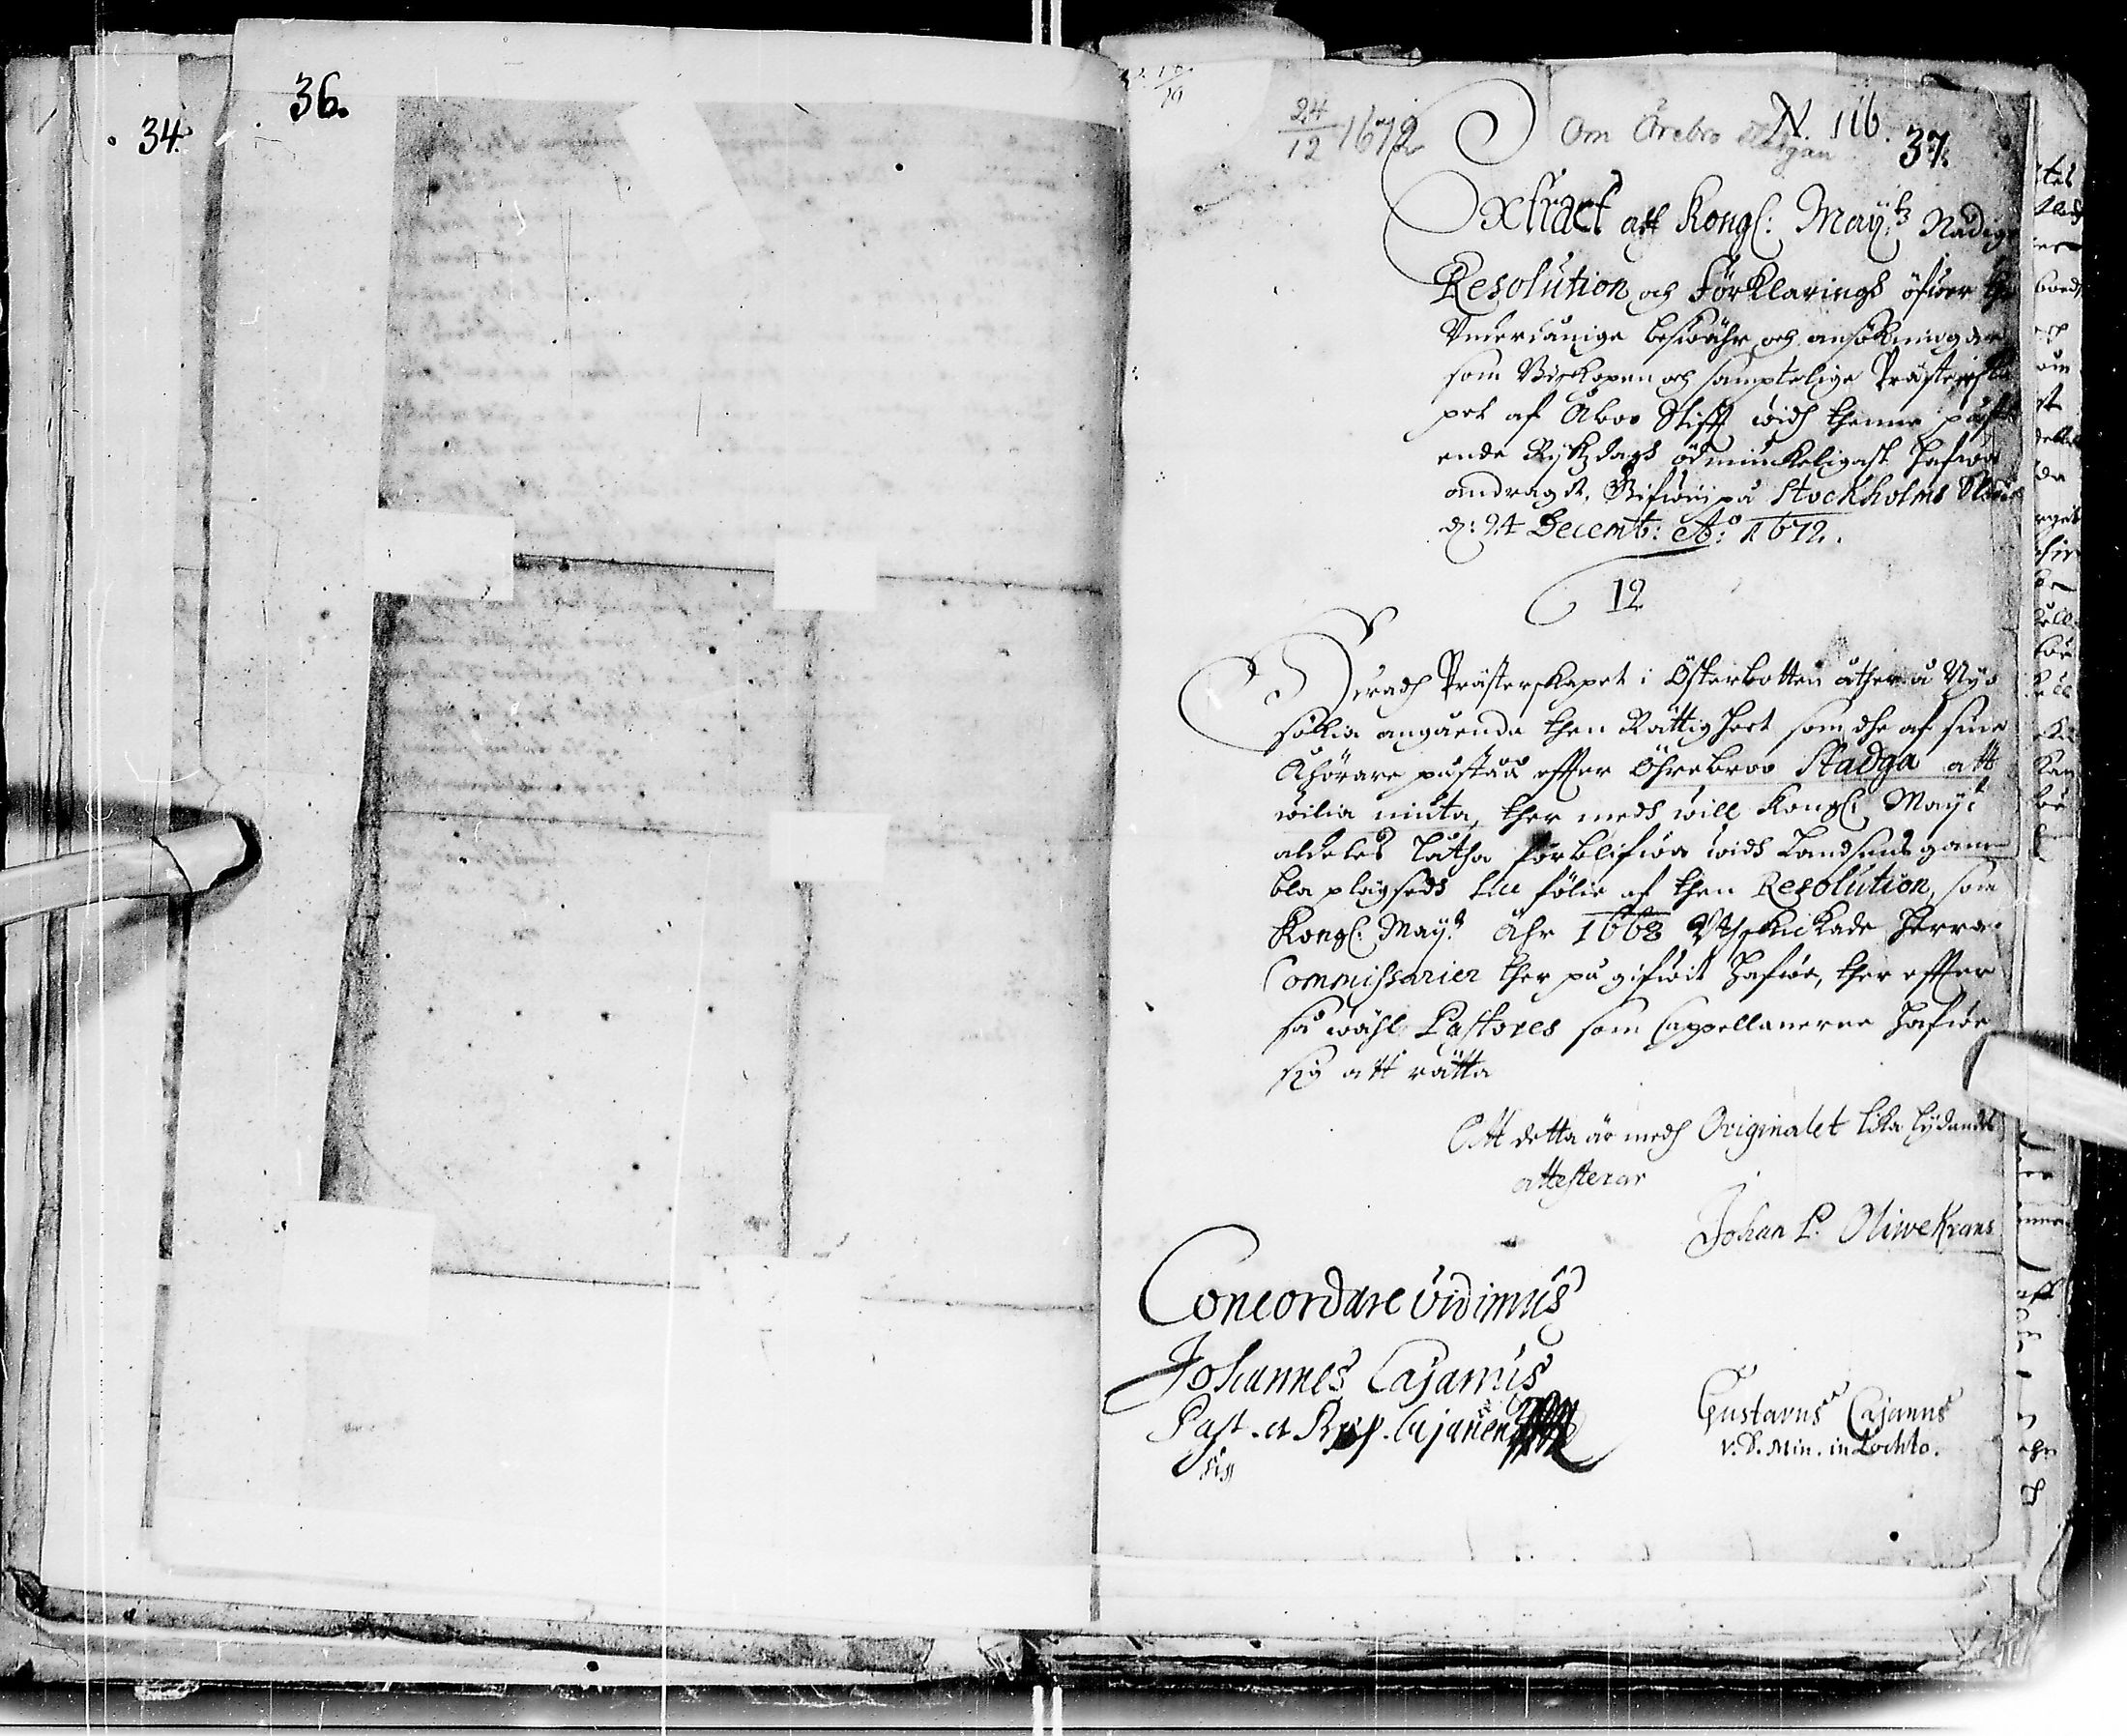 34.
36.
24/12 1672
Om Örebro stadgan
N. 116.
37.
Extract aff Kongl: May:tz Nådige
Resolution och Förklaringh öfwer the
Underdånige beswähr och ansökningar
som Biskopen och samptelige Prästerska
pet af Åboo Stifft widh thenne påstå
ende Rijkzdagh ödmiukeligast hafwa
andragit, Gifwin på Stockholms Slott
d: 24 Decemb: Ao: 1672.
12
Hwadh Prästerskapet i Österbotten åther å Nyo
sökia angåendе then Rättigheet som dhe af sine
Åhörare påståå effter Öhrebroo Stadga att
wilia niuta, ther medh will Kongl: May:t
aldeles låtha förblifwa widh Landsens gam
bla plägsedh till fölie af then Resolution, som
Kongl: May:tz Åhr 1668 Uthskickade Herrar
Commissarier ther på gifwit hafwe, ther effter
så wähl Pastores som Cappellanerne hafwe
sig att rätta
Att detta är medh Originalet lika lydande
attesterar
Johan P. Oliwekrans
Concordare vidimus
Johannes Cajanus
Past. et Præp. Cajanen
sis
Gustavus Cajanus
V. D. Min. in Lochto.